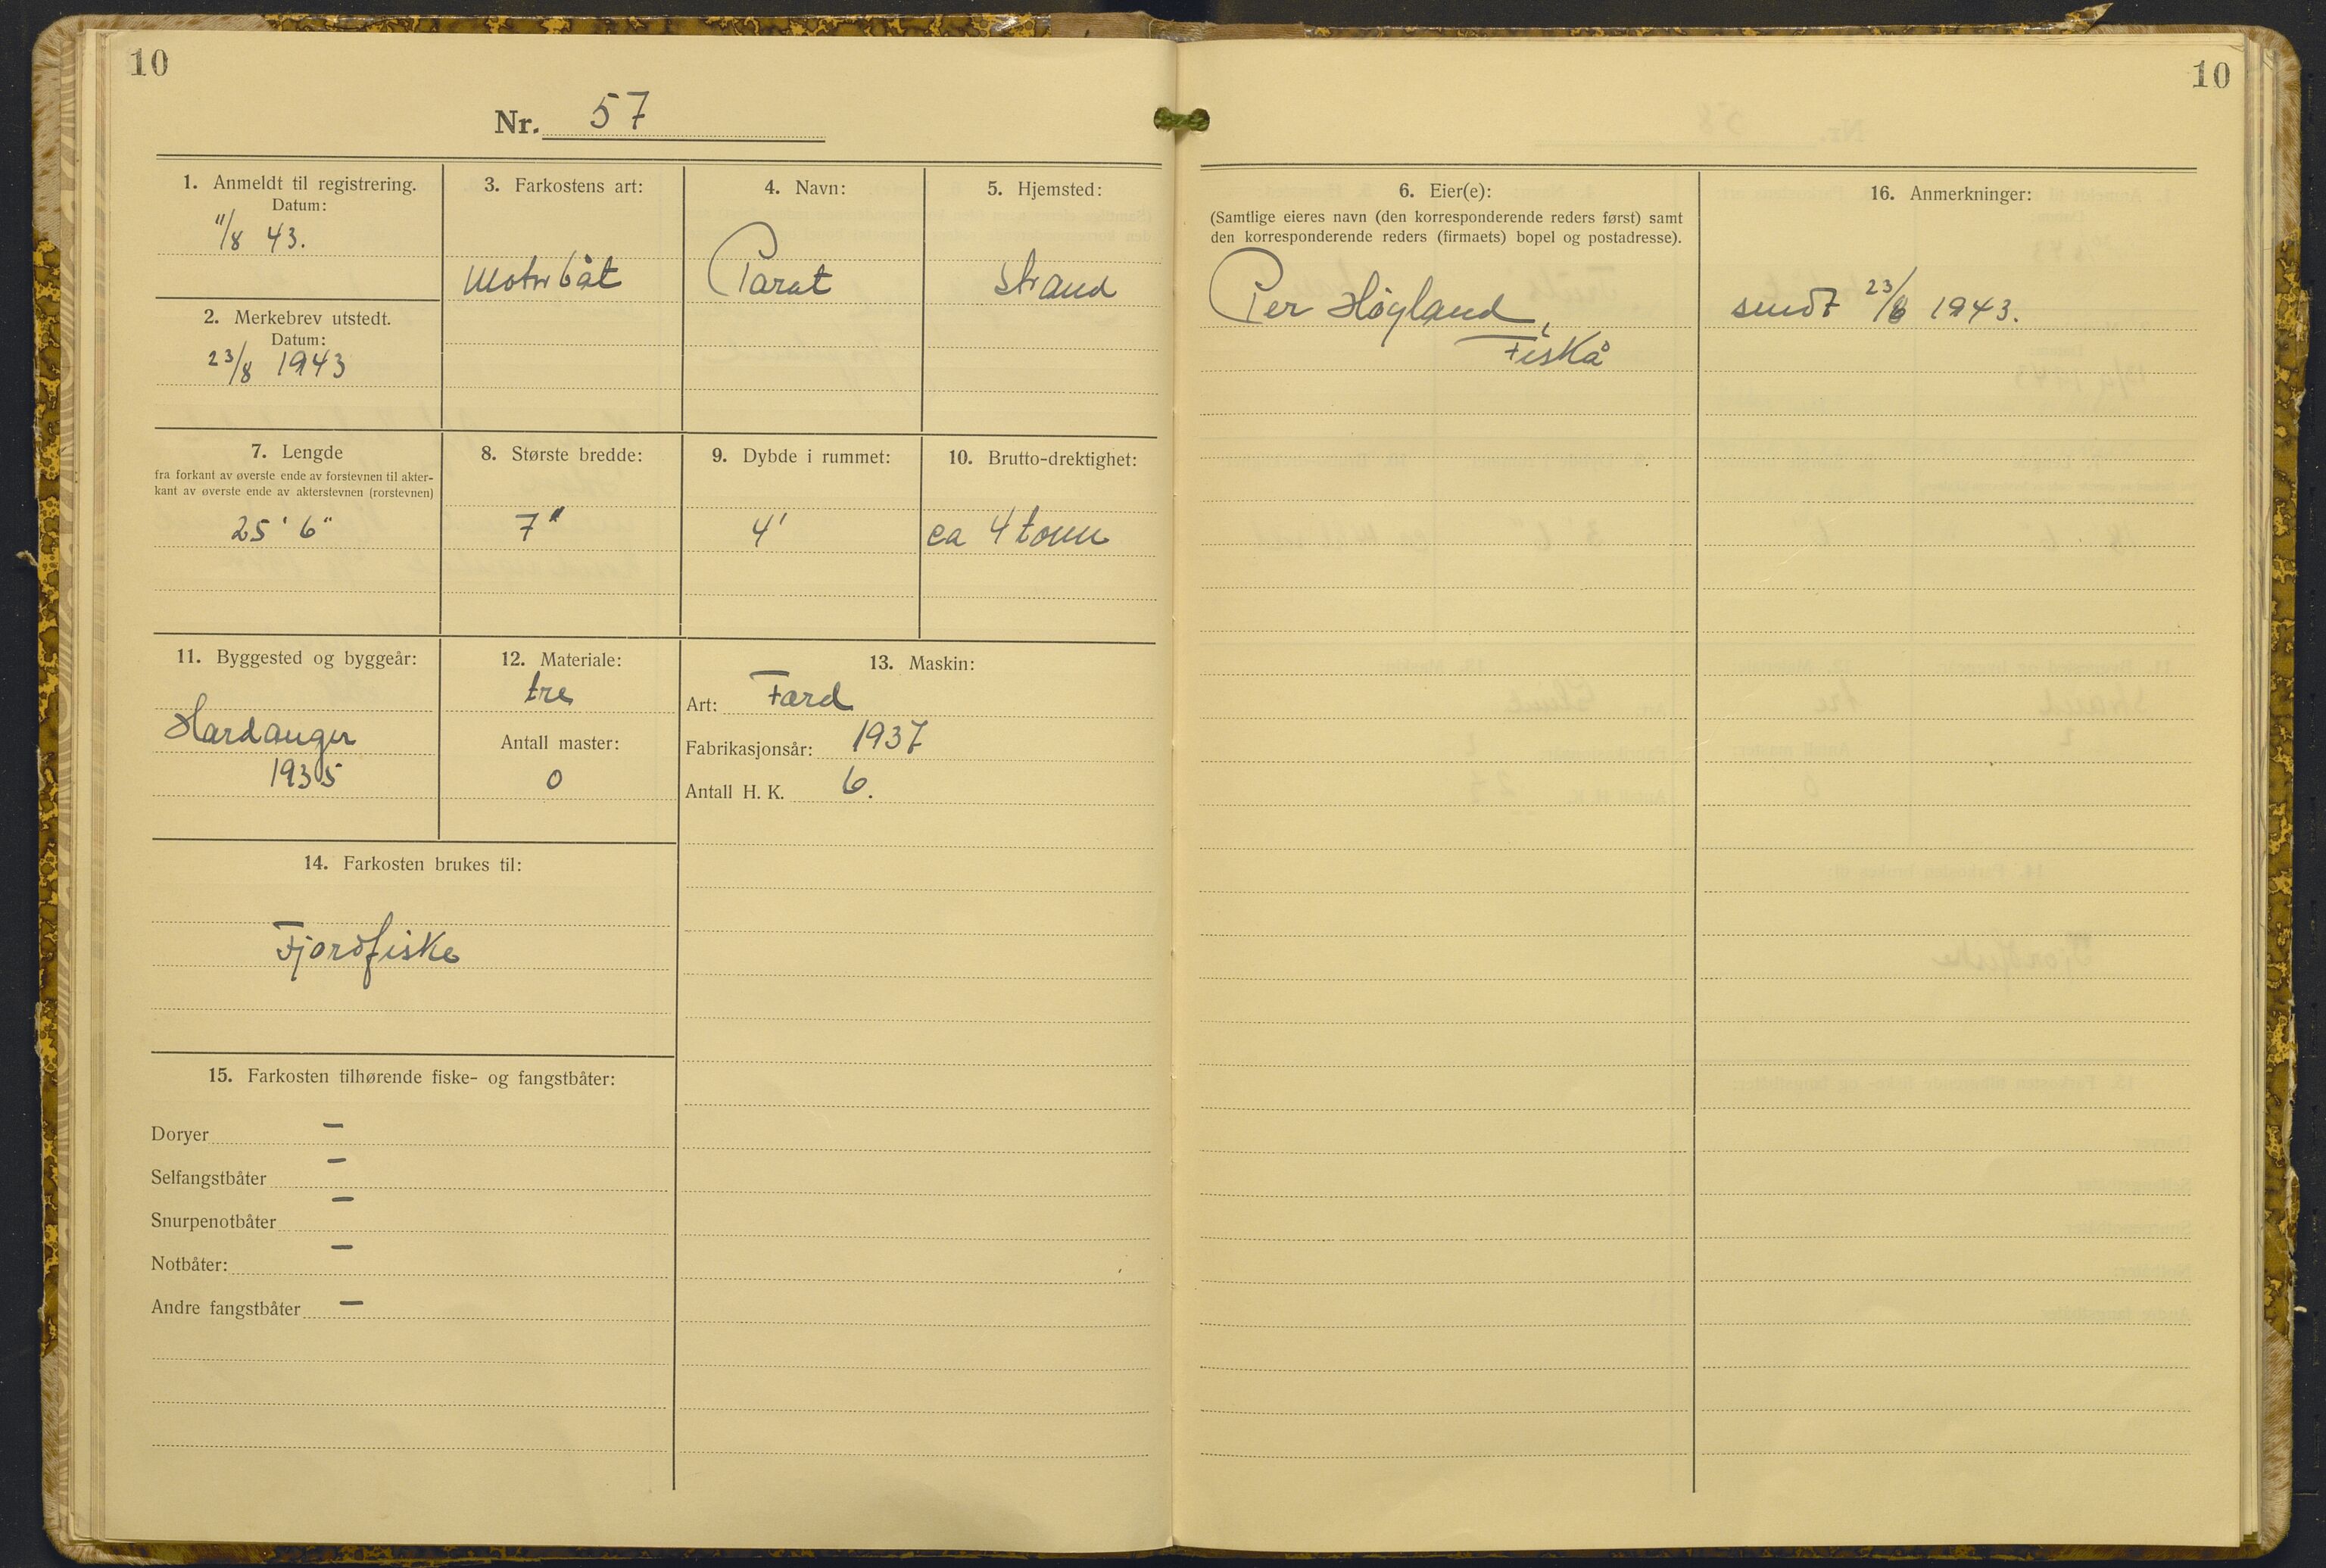 10
Nr. 57
1. Anmeldt til registrering.
Datum:
11/8 43.
2. Merkebrev utstedt.
Datum:
23/8 1943
3. Farkostens art:
Motorbåt
4. Navn:
Parat
5. Hjemsted:
Strand
7. Lengde
fra forkant av øverste ende av forstevnen til akter-
kant av øverste ende av akterstevnen (rorstevnen)
25' 6"
8. Største bredde:
7"
9. Dybde i rummet:
4'
10. Brutto-drektighet:
ca 4 tonn
11. Byggested og byggeår:
Hardanger
1935
12. Materiale:
tre
Antall master:
0
13. Maskin:
Art: Ford
Fabrikasjonsår: 1937
Antall H. K. 6.
14. Farkosten brukes til:
Fjordfiske
15. Farkosten tilhørende fiske- og fangstbåter:
Doryer —
Selfangstbåter —
Snurpenotbåter —
Notbåter: —
Andre fangstbåter —
10
6. Eier(e):
(Samtlige eieres navn (den korresponderende reders først) samt
den korresponderende reders (firmaets) bopel og postadresse).
Per Høgland,
Fiskå
16. Anmerkninger:
sendt 23/8 1943.